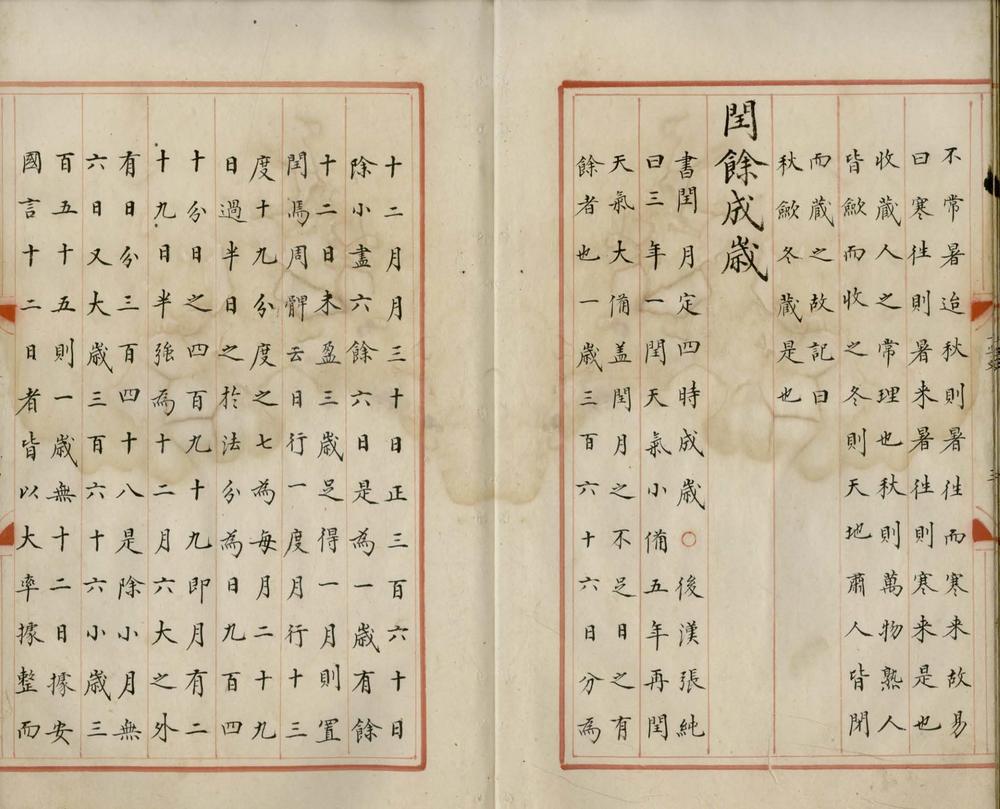 不常暑迨秋則暑徃而寒来故易
曰寒徃則暑来暑徃則寒来是也
收蔵人之常理也秋則萬物熟人
皆歛而收之冬則天地肅人皆閉
而蔵之故記曰
秋歛冬蔵是也
閏餘成歳
書閏月定四時成歳○後漢張純
曰三年一閏天氣小偹五年再閏
天氣大偹盖閏月之不足日之有
餘者也一歳三百六十六日分為
十二月月三十日正三百六十日
除小盡六餘六日是為一歳有餘
十二日未盈三歳足得一月則置
閏焉周髀云日行一度月行十三
度十九分度之七為每月二十九
日過半日之於法分為日九百四
十分日之四百九十九即月有二
十九日半強為十二月六大之外
有日分三百四十八是除小月無
六日又大歳三百六十六小歳三
百五十五則一歳無十二日據安
國言十二日者皆以大率據整而